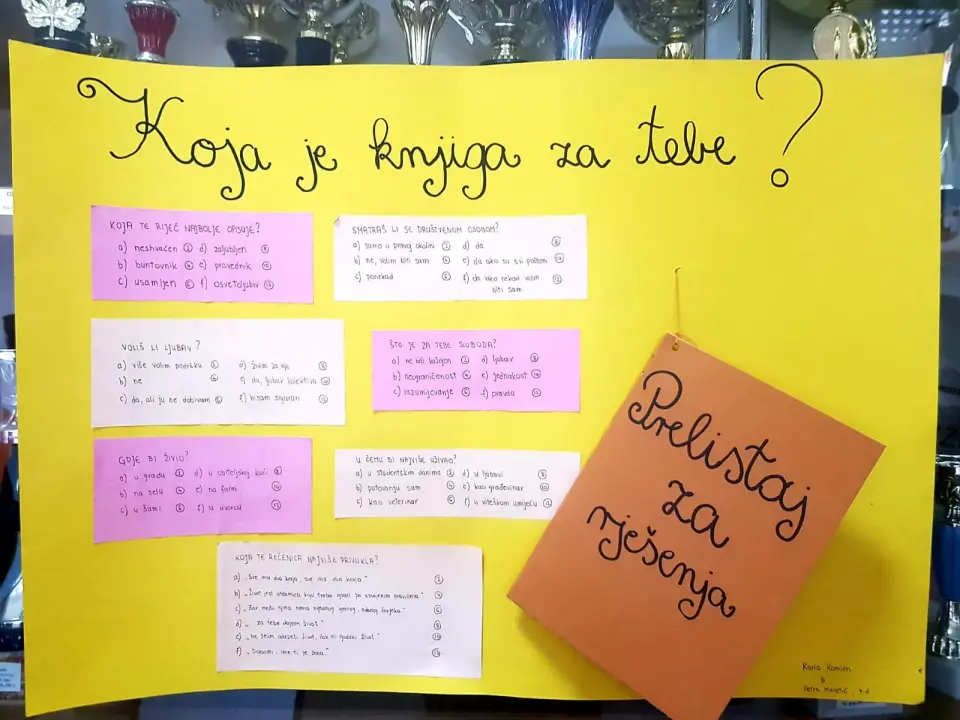 Koja je knjiga za tebe?
KOJA TE RIJEČ NAJBOLJE OPISUJE?
a) neshvaćen 2 d) zaljubljen 8
b) buntovnik 4 e) pravednik 10
c) usamljen 6 f) osvetoljubiv 12
SMATRAŠ LI SE DRUŠTVENOM OSOBOM?
a) samo u pravoj okolini 2 d) da 8
b) ne, volim biti sam 4 e) da ako su svi pošteni 10
c) ponekad 6 f) da iako nekad volim 12
biti sam
VOLIŠ LI LJUBAV?
a) više volim podršku 2 d) živim za nju 8
b) ne 4 e) da, ljubav kolektiva 10
c) da, ali ju ne dobivam 6 f) nisam siguran 12
ŠTO JE ZA TEBE SLOBODA?
a) ne biti 2 d) ljubav 8
b) neograničenost 4 e) jednakost 10
c) razumijevanje 6 f) pravda 12
GDJE BI ŽIVIO?
a) u gradu 2 d) u obiteljskoj kući 8
b) na selu 4 e) na farmi 10
c) u šumi 6 f) u dvorcu 12
U ČEMU BI NAJVIŠE UŽIVAO?
a) u studentskim danima 2 d) u ljubavi 8
b) putovanju sam 4 e) kao građevinar 10
c) kao veterinar 6 f) u viteškom umijeću 12
KOJA TE REČENICA NAJVIŠE PRIVUKLA?
a) „Sve ima dva kraja, sve ima dva kraja“ 2
b) „Život jest utakmica koju treba igrati po pravilima“ 4
c) „Zar među njima nema nijednog čovjeka“ 6
d) „Za tebe dajem život“ 8
e) „Ne želim život, život“ 10
f) „Slabosti, ime ti je žena.“ 12
Prelistaj
za
rješenja
Karla
&
Petra 4.d